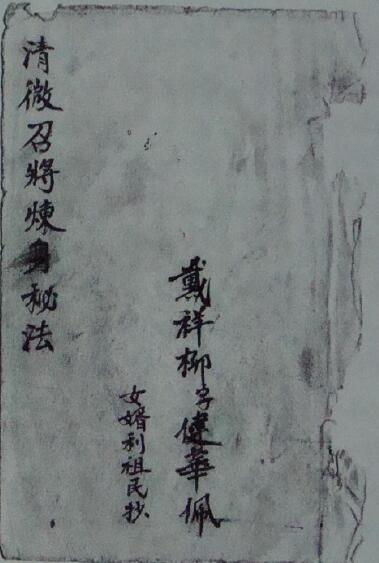 清微召將煉身秘法
戴祥柳字健華佩
女婿利祖民抄